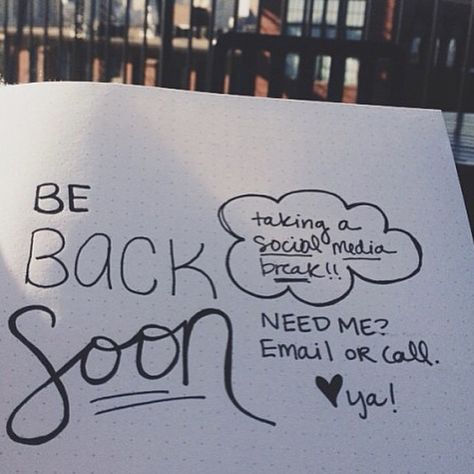 BE
BACK
Soon
taking a
social media
break!!
NEED ME?
Email OR Call.
♥ ya!